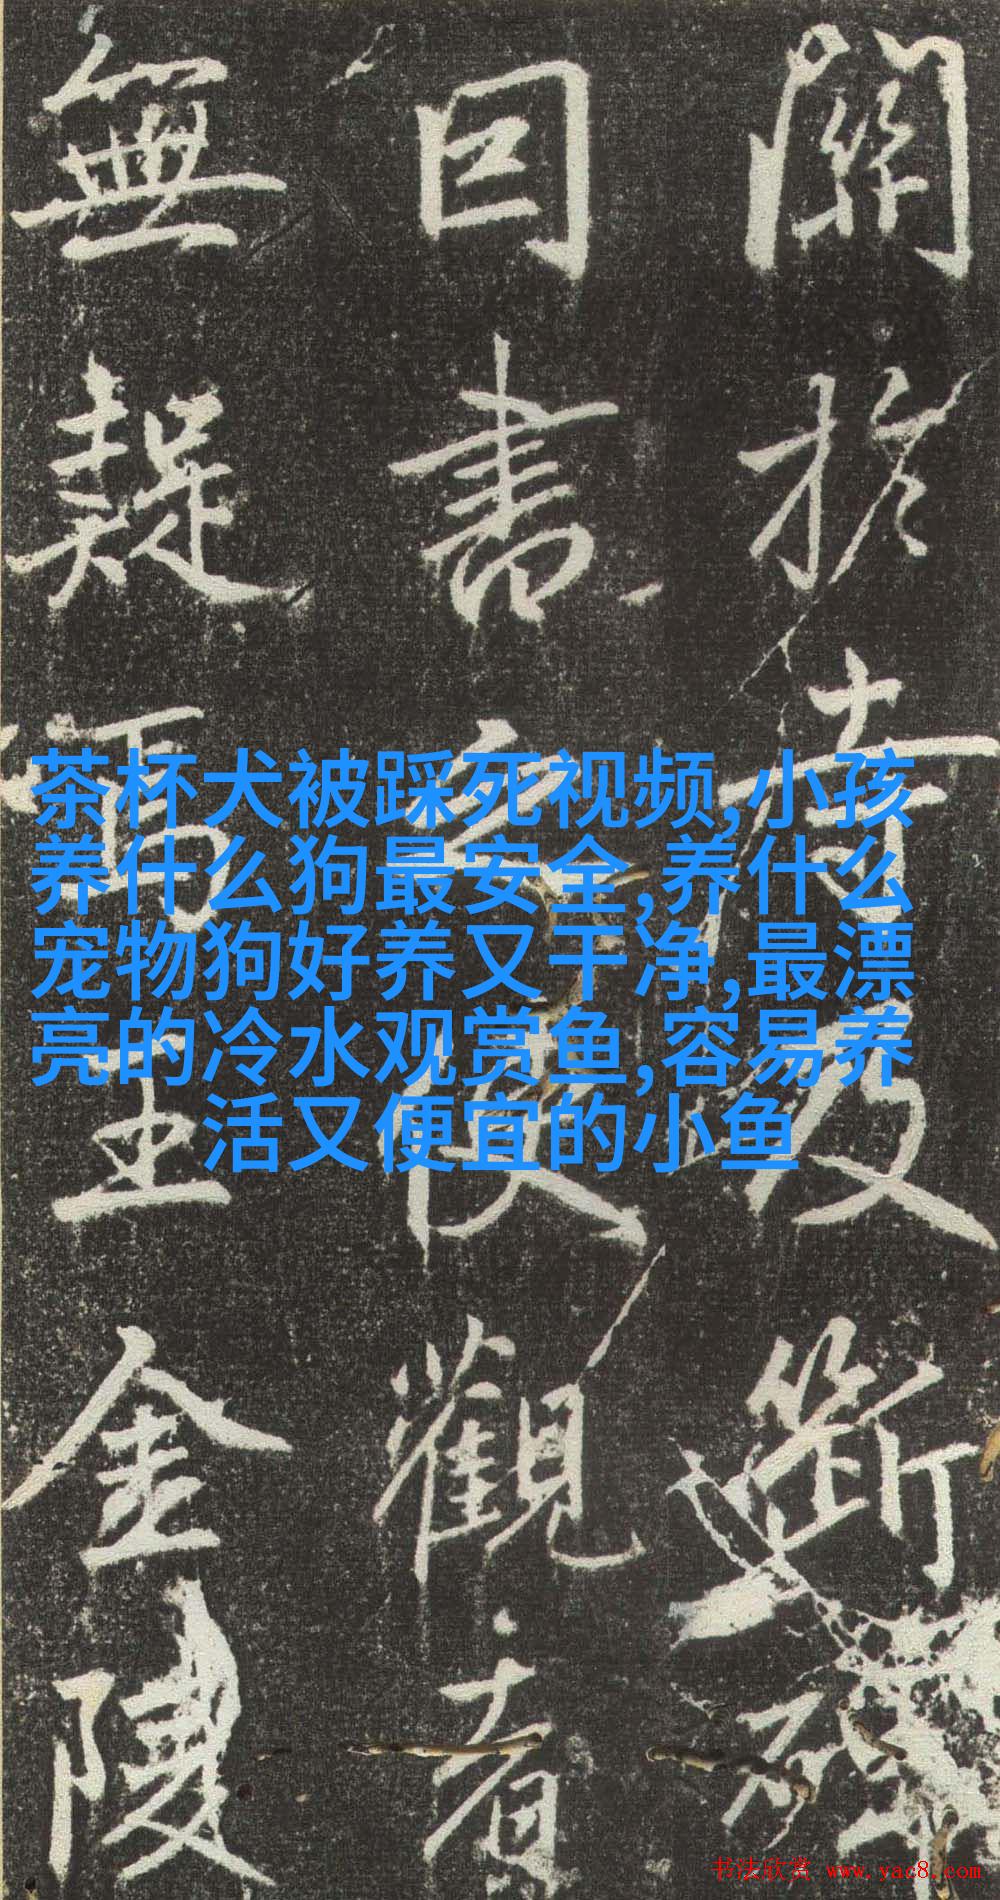 及斷
曰書使觀者
無疑王金陵
茶杯犬被踩死视频,小孩
养什么狗最安全,养什么
宠物狗好养又干净,最漂
亮的冷水观赏鱼,容易养
活又便宜的小鱼
书法欣赏 www.yac8.com